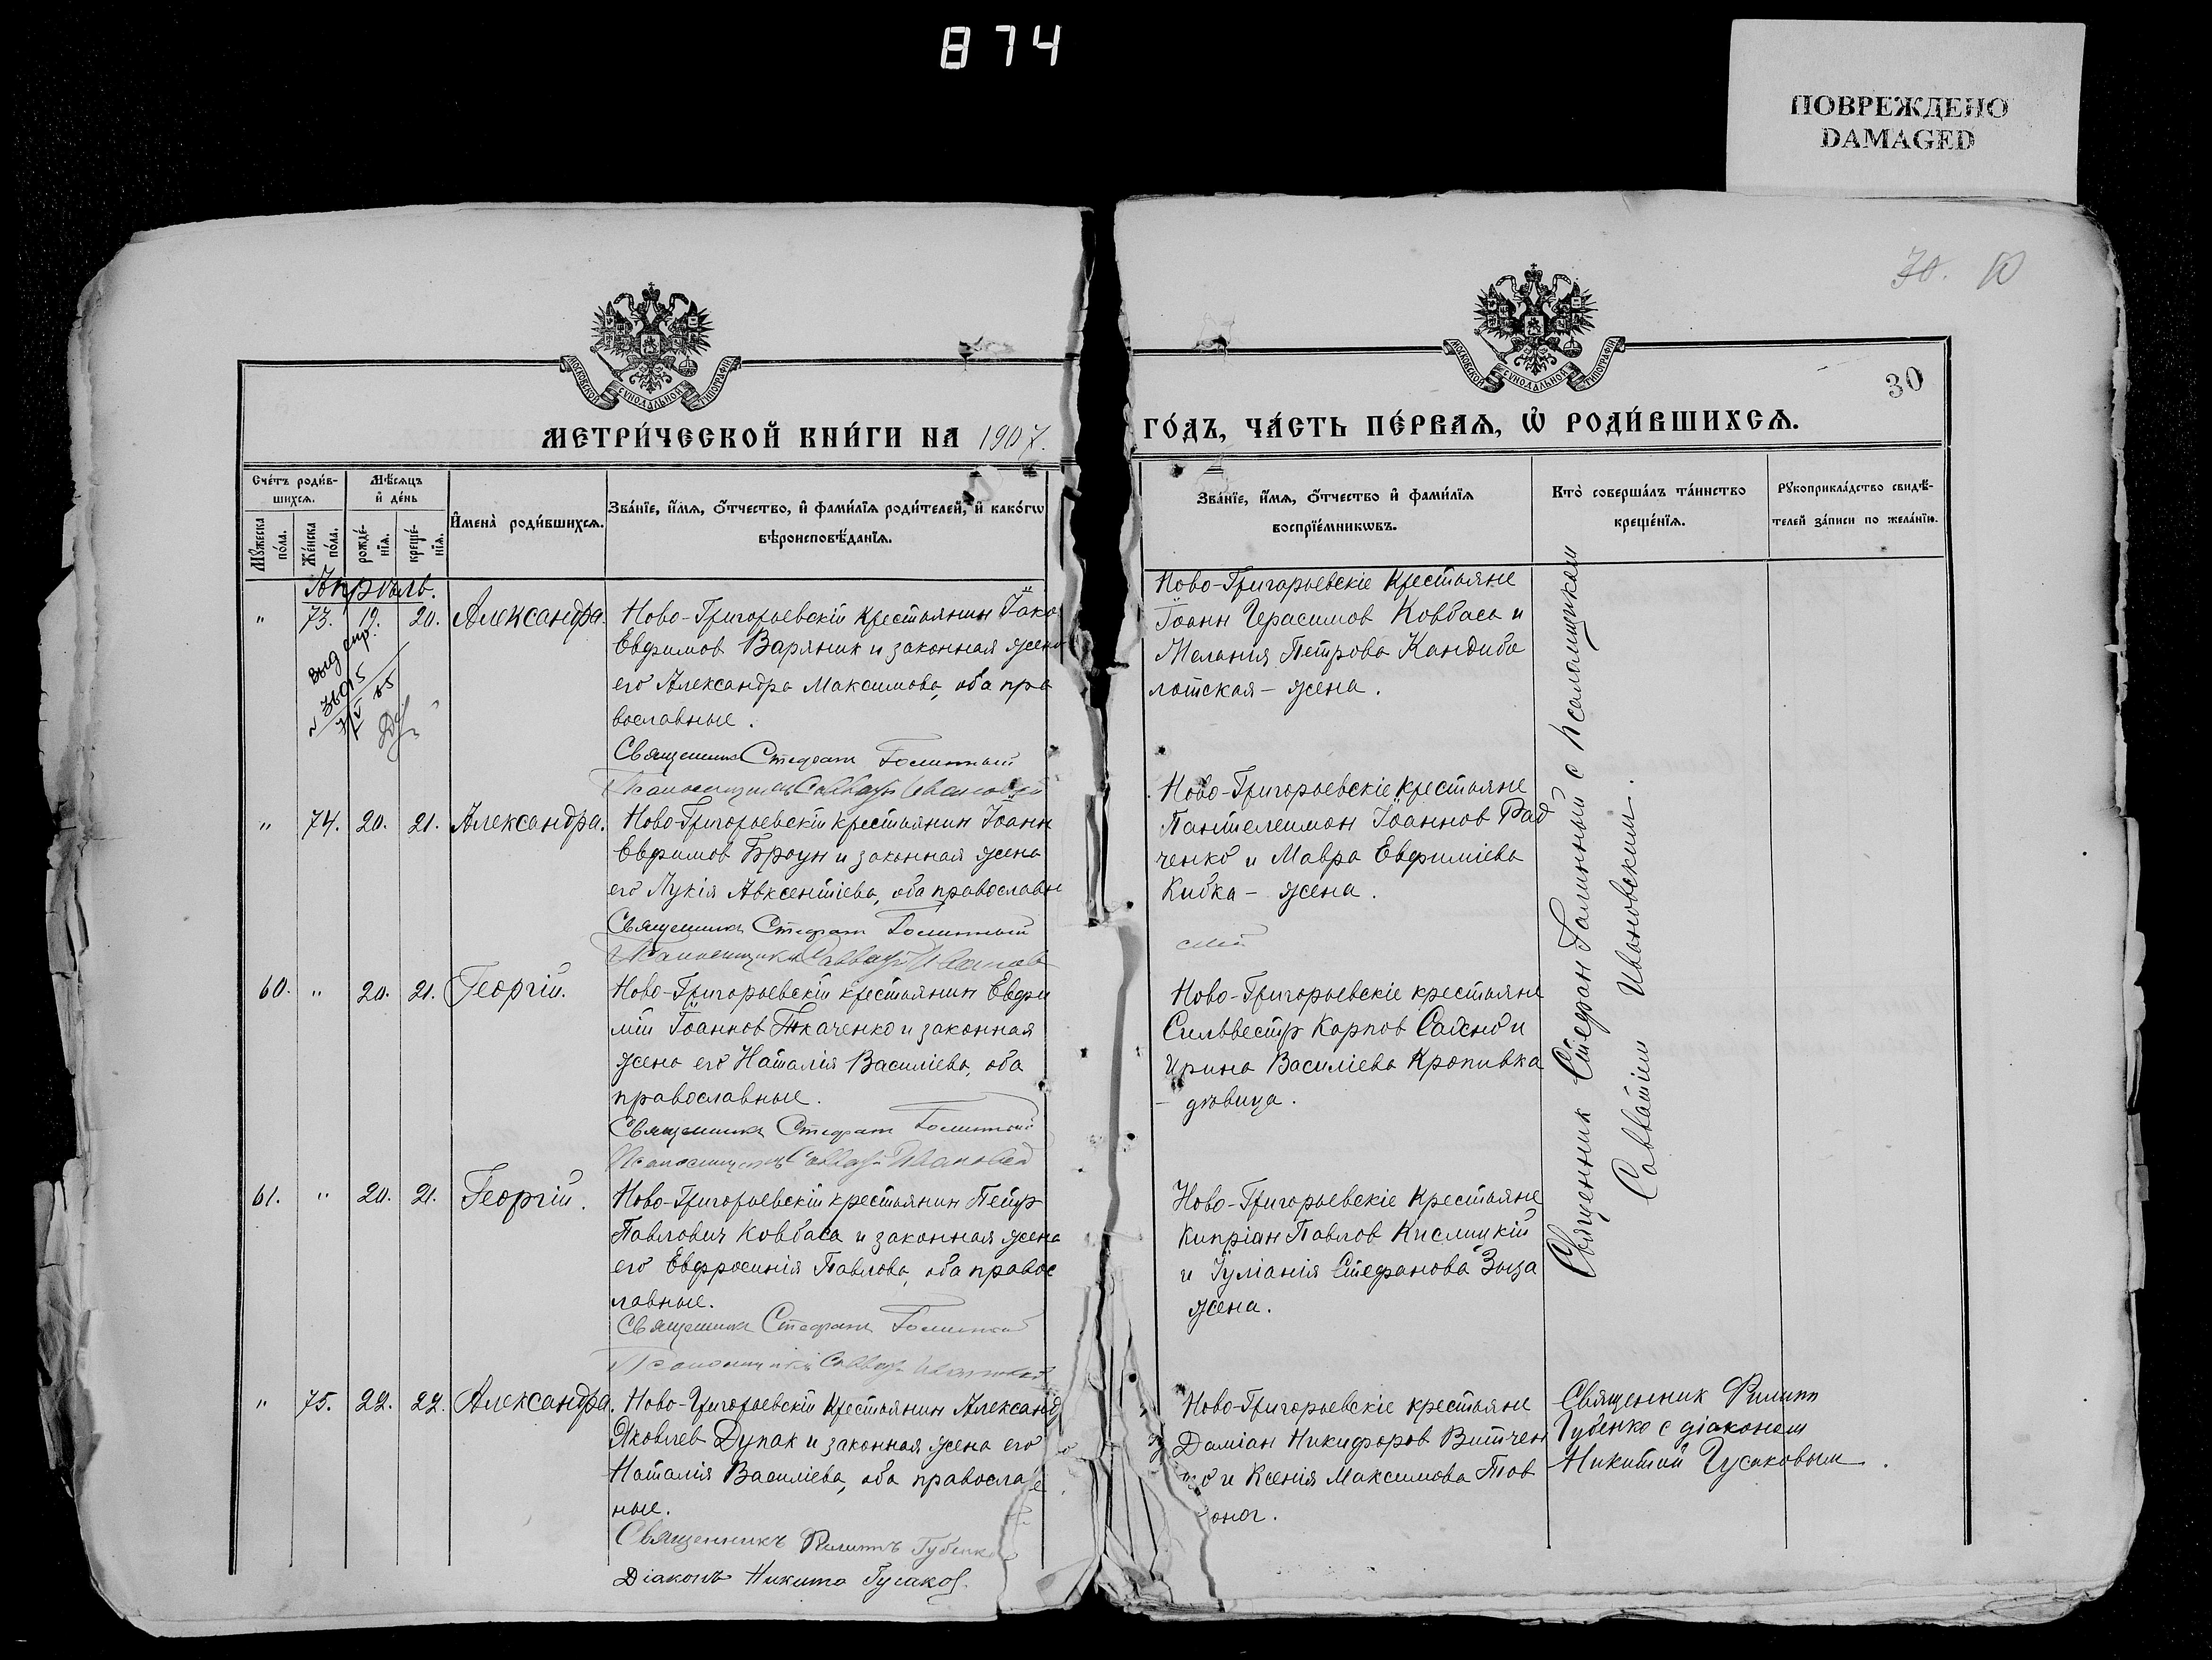 874
ПОВРЕЖДЕНО
DAMAGED
30
МОСКОВСКОЙ СУНОДАЛЬНОЙ ТИПОГРАФІИ
МОСКОВСКОЙ СУНОДАЛЬНОЙ ТИПОГРАФІИ
МЕТРИ́ЧЕСКОЙ КНИ́ГИ НА 1907.
ГО́ДЪ, ЧА́СТЬ ПЕ́РВАѦ, Ѡ҆ РОДИ́ВШИХСѦ.
Сче́тъ роди́в-
шихсѧ.
Мѣ́сѧцъ
и҆ де́нь
Мꙋ́жеска
по́ла.
Же́нска
по́ла.
рожде́-
нїѧ.
креще́-
нїѧ.
И҆мена̀ роди́вшихсѧ.
Зва́нїе, и҆́мѧ, ѻ҆́тчество, и҆ фами́лїѧ роди́телей, и҆ како́гѡ
вѣроисповѣ́данїѧ.
Зва́нїе, и҆́мѧ, ѻ҆́тчество и҆ фами́лїѧ
воспрїе́мникѡвъ.
Кто̀ соверша́лъ та́инство
креще́нїѧ.
Рꙋкоприкла́дство свидѣ́-
телей за́писи по жела́нїю.
Апрѣль.
" 73. 19. 20. Александра.
Ново-Григорьевскій крестьянин Іако
Евфимов Варяник и законная жена
его Александра Максимова, оба пра
вославные.
Священник Стефан Голинный
Псаломщик Савватій Ивановскій
Ново-Григорьевскіе крестьяне
Іоанн Герасимов Ковбаса и
Мелания Петрова Кандиба
лотская - жена.
выд. спр.
" 74. 20. 21. Александра.
Ново-Григорьевскій крестьянин Іоанн
Евфимов Броун и законная жена
его Лукія Авксентіева, оба православн
Священник Стефан Голинный
Псаломщик Савватій Иванов
Ново-Григорьевскіе крестьяне
Пантелеимон Іоаннов Рад
ченко и Мавра Евфиміева
Кибка - жена.
60. " 20. 21. Георгій.
Ново-Григорьевскій крестьянин Евфи
мій Іоаннов Ткаченко и законная
жена его Наталія Василіева, оба
православные.
Священник Стефан Голинный
Псаломщик Савватій Ивановскій
Ново-Григорьевскіе крестьяне
Сильвестр Карпов и
Ирина Василіева Кропивка
- дѣвица.
61. " 20. 21. Георгій.
Ново-Григорьевскій крестьянин Петр
Павлович Ковбаса и законная жена
его Евфросинія Павлова, оба правос
лавные.
Священник Стефан Голинный
Псаломщик Савватій Ивановскій
Ново-Григорьевскіе крестьяне
Кипріан Павлов Кислицкій
и Іуліанія Стефанова Зыза
жена.
Священник Стефан Голинный с псаломщиком
Савватіем Ивановским.
" 75. 22. 22. Александра.
Ново-Григорьевскій крестьянин Александ
Яковлев Дупак и законная жена его
Наталія Василіева, оба православ
ные.
Священникъ Филиппъ Губенко
Діаконъ Никита Гусаков.
Ново-Григорьевскіе крестьяне
Даміан Никифоров Витчен
ко и Ксенія Максимова Тов
оног.
Священник Филипп
Губенко с діаконом
Никитой Гусаковым.